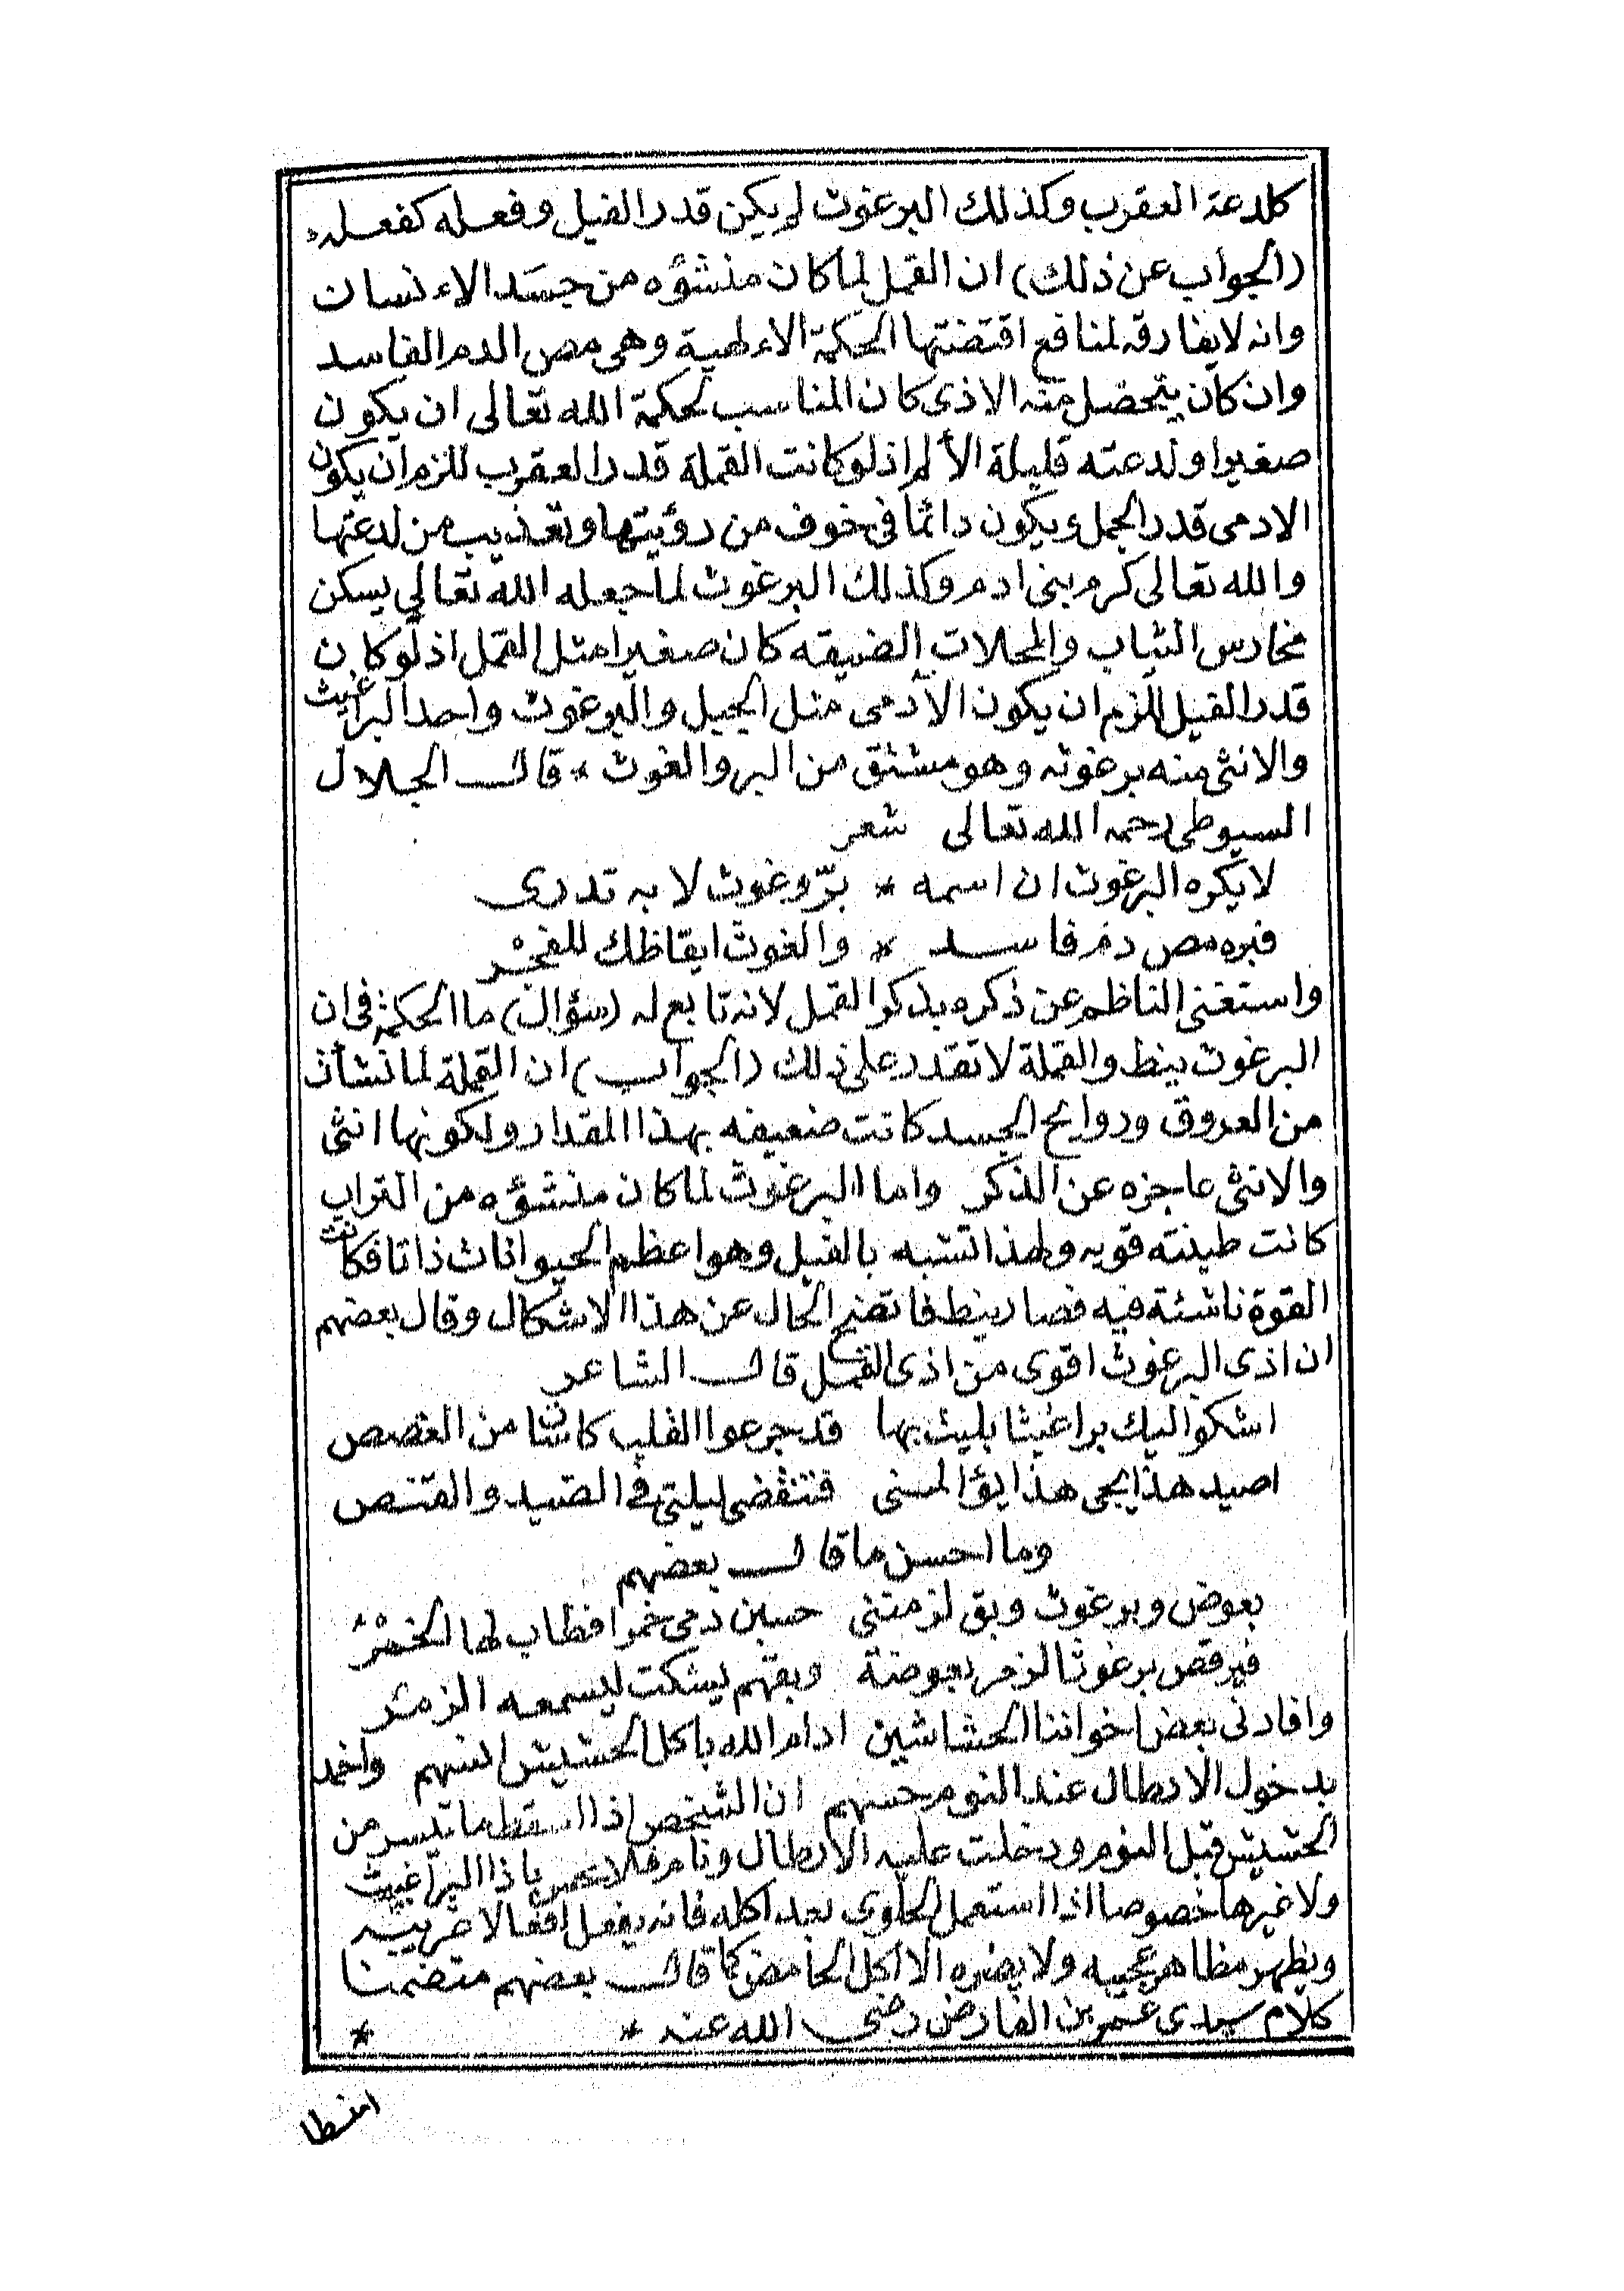 كلدعة العقرب وكذلك البرغوث لم يكن قدر الفيل وفعله كفعله
(الجواب عن ذلك) ان القمل لما كان منشؤه من جسَد الاءنسان
وانه لايفارقه لمنافع اقتضتها الحكمة الاءلهية وهى مص الدم الفاسد
وان كان يتحصل منه الاذى كان المناسب لحكمة الله تعالى ان يكون
صغيرا ولدعته قليلة الألم اذ لو كانت القملة قدر العقرب للزم ان يكون
الادمى قدر الجمل ويكون دائما فى خوف من رؤيتها وتعذيب من لدعتها
والله تعالى كرم بنى ادم وكذلك البرغوث لما جعله الله تعالى يسكن
مخارس الثياب والمحلات الضيقه كان صغيرا مثل القمل اذ لو كان
قدر الفيل للزم ان يكون الآدمى مثل الجبل والبرغوث واحد البراغيث
والانثى منه برغوثه وهو مشتق من البر والغوث * قال الجلال
السيوطى رحمه الله تعالى شعر
لا يكره البرغوث ان اسمه * برّ وغوث لا به تدرى
فبره مص دم فاسد * والغوث ايقاظك للفجر
واستغنى الناظم عن ذكره بذكر القمل لانه تابع له (سؤال) ما الحكمة فى ان
البرغوث ينط والقملة لا تقدر على ذلك (الجواب) ان القملة لما نشأت
من العروق وروايح الجسد كانت ضعيفه بهذا المقدار ولكونها انثى
والانثى عاجزه عن الذكر واما البرغوث لما كان منشؤه من التراب
كانت طينته قويه ولهذا تشبه بالفيل وهو اعظم الحيوانات ذاتا فكانت
القوة ناشئة فيه فصار ينط فاتضح الحال عن هذا الاشكال وقال بعضهم
ان اذى البرغوث اقوى من اذى القمل قال الشاعر
اشكو اليك براغيثا بليت بها قد جرعوا القلب كاسا من الغصص
اصيد هذا يجى هذا يؤالمنى فتنقضى ليلتى فى الصيد والقنص
وما احسن ما قال بعضهم
بعوض وبرغوث وبق لزمتنى حسبن دمى خمرا فطاب لها الخمر
فيرقص برغوثا لزمر بعوضة وبقهم يسكت ليسمعه الزمر
وافادنى بعض اخواننا الحشاشين ادام الله باكل الحشيش انسهم واخمد
بدخول الارطال عند النوم حسهم ان الشخص اذا اسقط ما تيسر من
الحشيش قبل النوم ودخلت عليه الارطال ونام فلا يحس باذا البراغيث
ولا غيرها خصوصا اذا استعمل الحلوى بعد اكله فانه يفعل افعالا غريبه
ويظهر مظاهر عجيبه ولا يضره الا اكل الحامض كما قال بعضهم متضمنا
كلام سيدى عمر بن الفارض رضى الله عنه * *